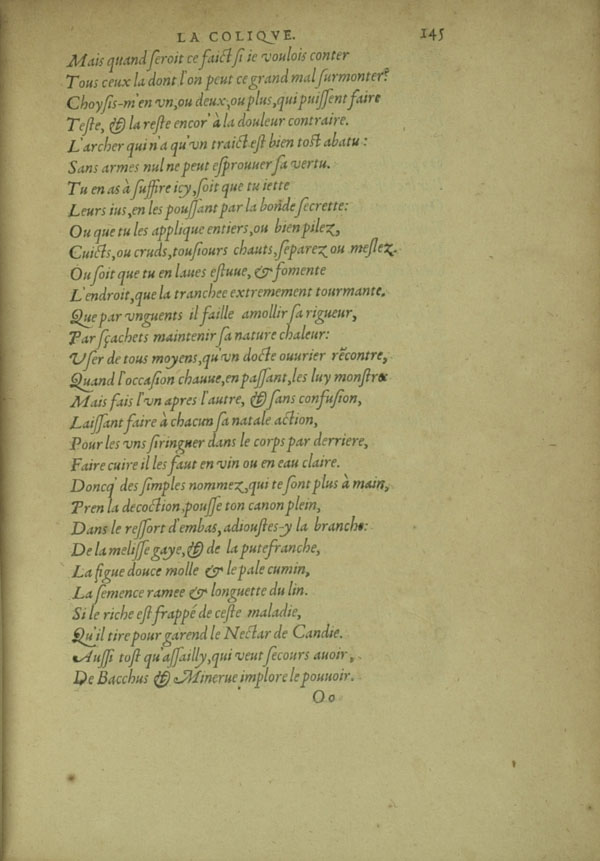 LA COLIQVE. 145
Mais quand ſeroit ce faict ſi ie voulois conter
Tous ceux la dont l'on peut ce grand mal ſurmonter?
Choyſis-m'en vn, ou deux, ou plus, qui puiſſent faire
Teſte, & la reſte encor' à la douleur contraire.
L'archer qui n'a qu'vn traict eſt bien toſt abatu:
Sans armes nul ne peut eſprouuer ſa vertu.
Tu en as à ſuffire icy, ſoit que tu iette
Leurs ius, en les pouſſant par la bonde ſecrette:
Ou que tu les applique entiers, ou bien pilez,
Cuicts, ou cruds, touſiours chauts, ſeparez ou meſlez.
Ou ſoit que tu en laues eſtuue, & fomente
L'endroit, que la tranchee extremement tourmante.
Que par vnguents il faille amollir ſa rigueur,
Par sçachets maintenir ſa nature chaleur:
Vſer de tous moyens, qu'vn docte ouurier rẽcontre,
Quand l'occaſion chauue, en paſſant, les luy monſtre
Mais fais l'vn apres l'autre, & ſans confuſion,
Laiſſant faire à chacun ſa natale action,
Pour les vns ſiringuer dans le corps par derriere,
Faire cuire il les faut en vin ou en eau claire.
Doncq' des ſimples nommez, qui te ſont plus à main,
Pren la decoction, pouſſe ton canon plein,
Dans le reſſort d'embas, adiouſtes-y la branche:
De la meliſſe gaye, & de la putefranche,
La figue douce molle & le pale cumin,
La ſemence ramee & longuette du lin.
Si le riche eſt frappé de ceſte maladie,
Qu'il tire pour garend le Nectar de Candie.
Auſſi toſt qu'aſſailly, qui veut ſecours auoir,
De Bacchus & Minerue implore le pouuoir.
Oo